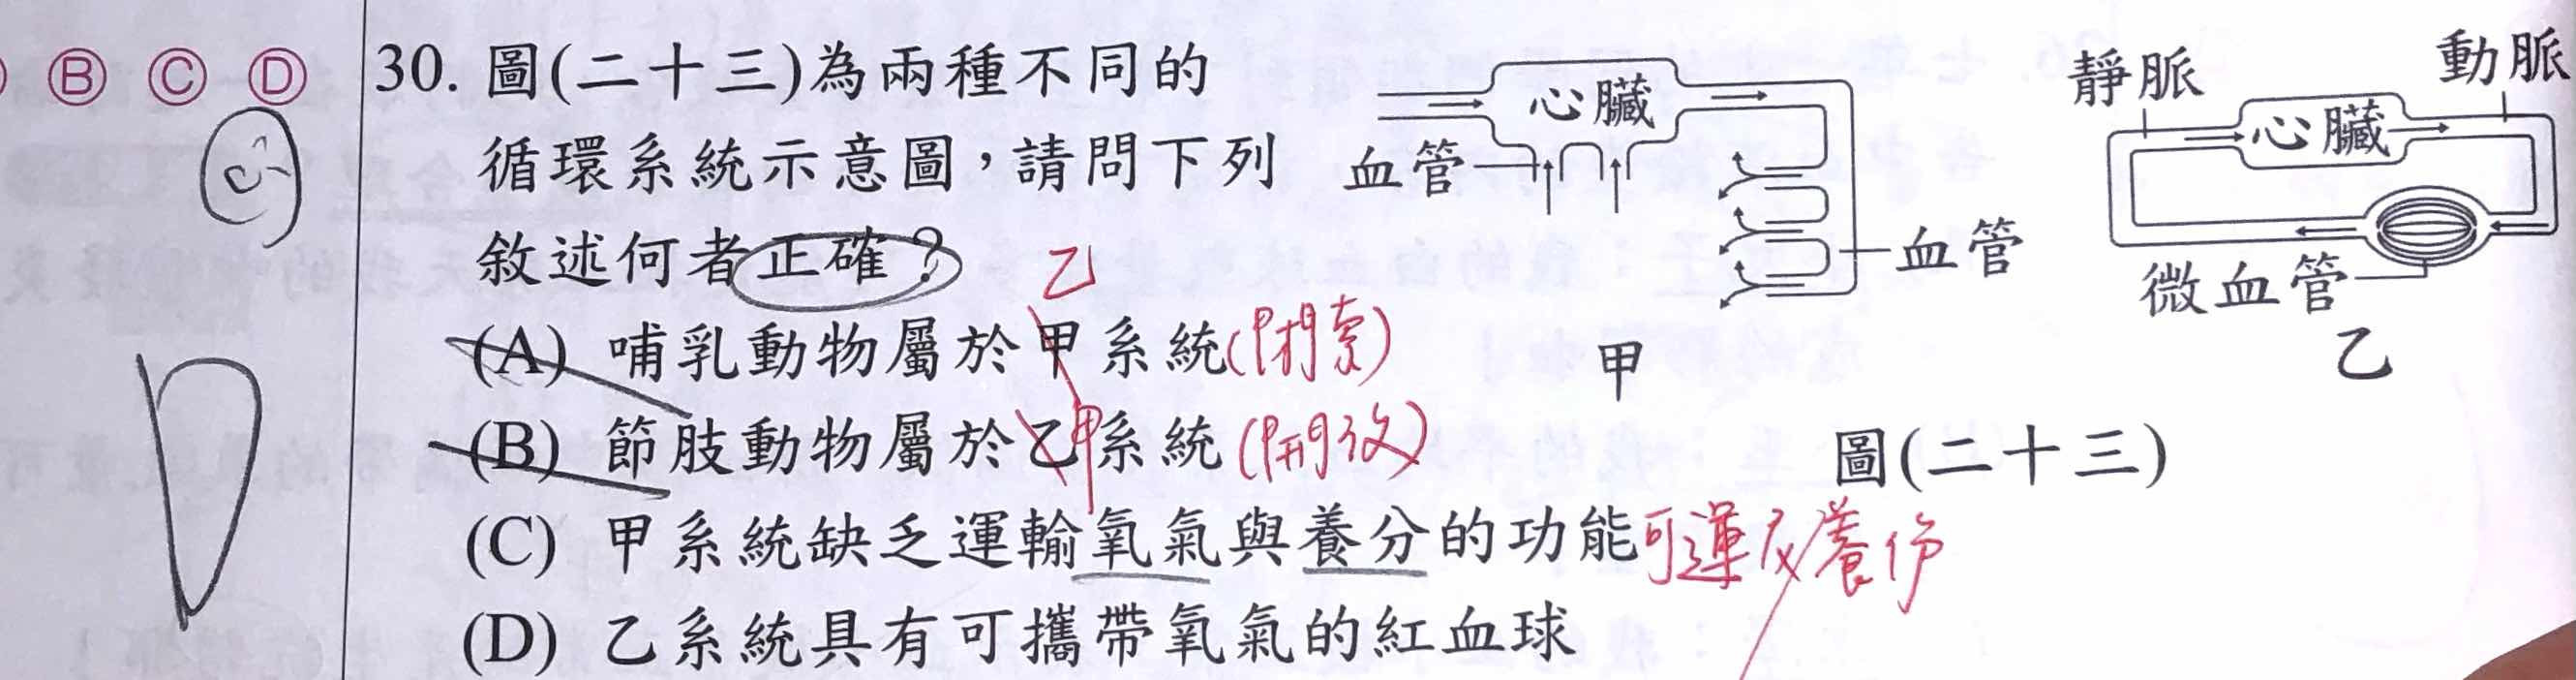 Ⓑ Ⓒ Ⓓ
30. 圖(二十三)為兩種不同的
循環系統示意圖，請問下列
敘述何者正確？
(A) 哺乳動物屬於甲系統(閉鎖)
乙
(B) 節肢動物屬於乙系統(開放)
甲
(C) 甲系統缺乏運輸氧氣與養分的功能
(D) 乙系統具有可攜帶氧氣的紅血球
心臟
血管
血管
甲
靜脈
動脈
心臟
微血管
乙
圖(二十三)
D